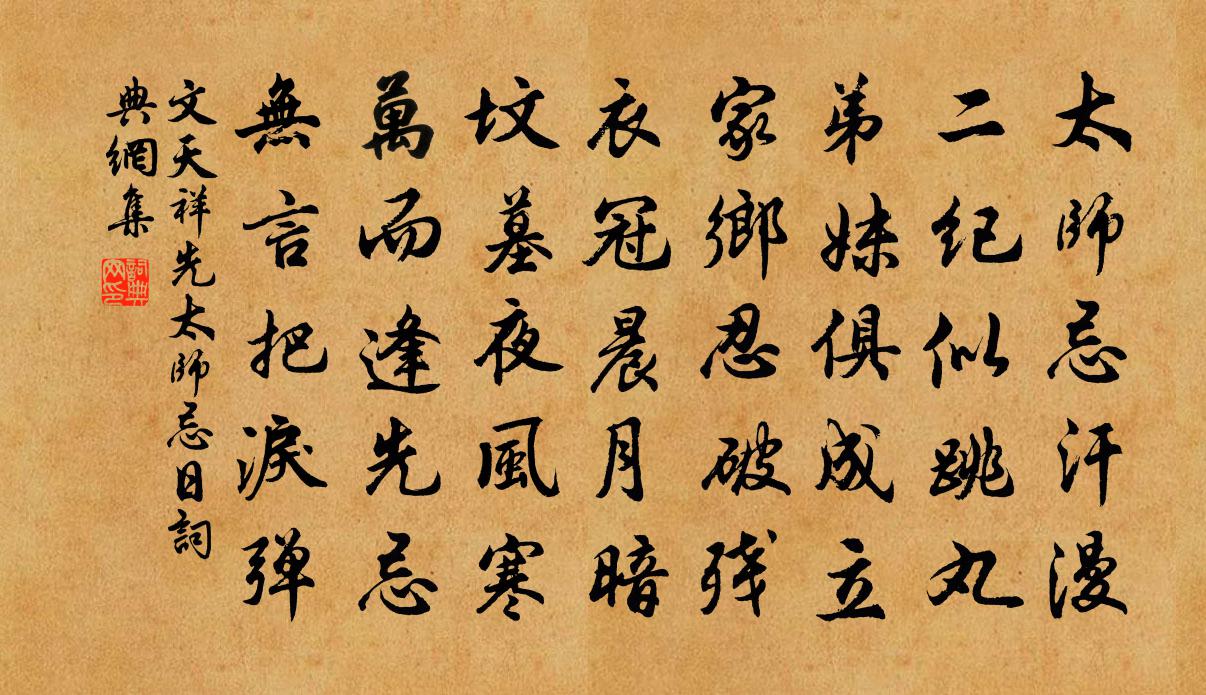 太師忌汗漫
二紀似跳丸
弟妹俱成立
家鄉忍破殘
衣冠晨月暗
墳墓夜風寒
萬而逢先忌
無言把淚彈
文天祥先太師忌日詞
典網集
詞典
网印